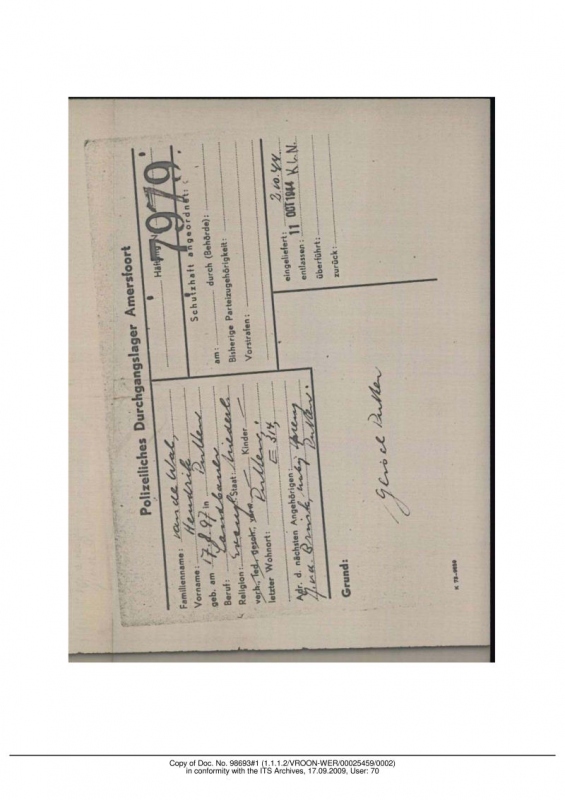 Polizeiliches Durchgangslager Amersfoort
Familienname: van de Wal,
Vorname: Hendrik
geb. am 17.8.97 in Putten
Beruf: Landbauer
Religion: Evang. Staat: Niederl.
verh., led., gesch., verw. — Kinder —
letzter Wohnort: Putten,
E 314
Adr. d. nächsten Angehörigen:
Putten.
Häftlings-Nr. 7979
Schutzhaft angeordnet:
am: durch (Behörde):
Bisherige Parteizugehörigkeit:
Vorstrafen:
eingeliefert: 2.10.44
entlassen: 11 OOT 1944 K.L.N.
überführt:
zurück:
Grund:
Geisel Putten
Copy of Doc. No. 98693#1 (1.1.1.2/VROON-WER/00025459/0002)
in conformity with the ITS Archives, 17.09.2009, User: 70